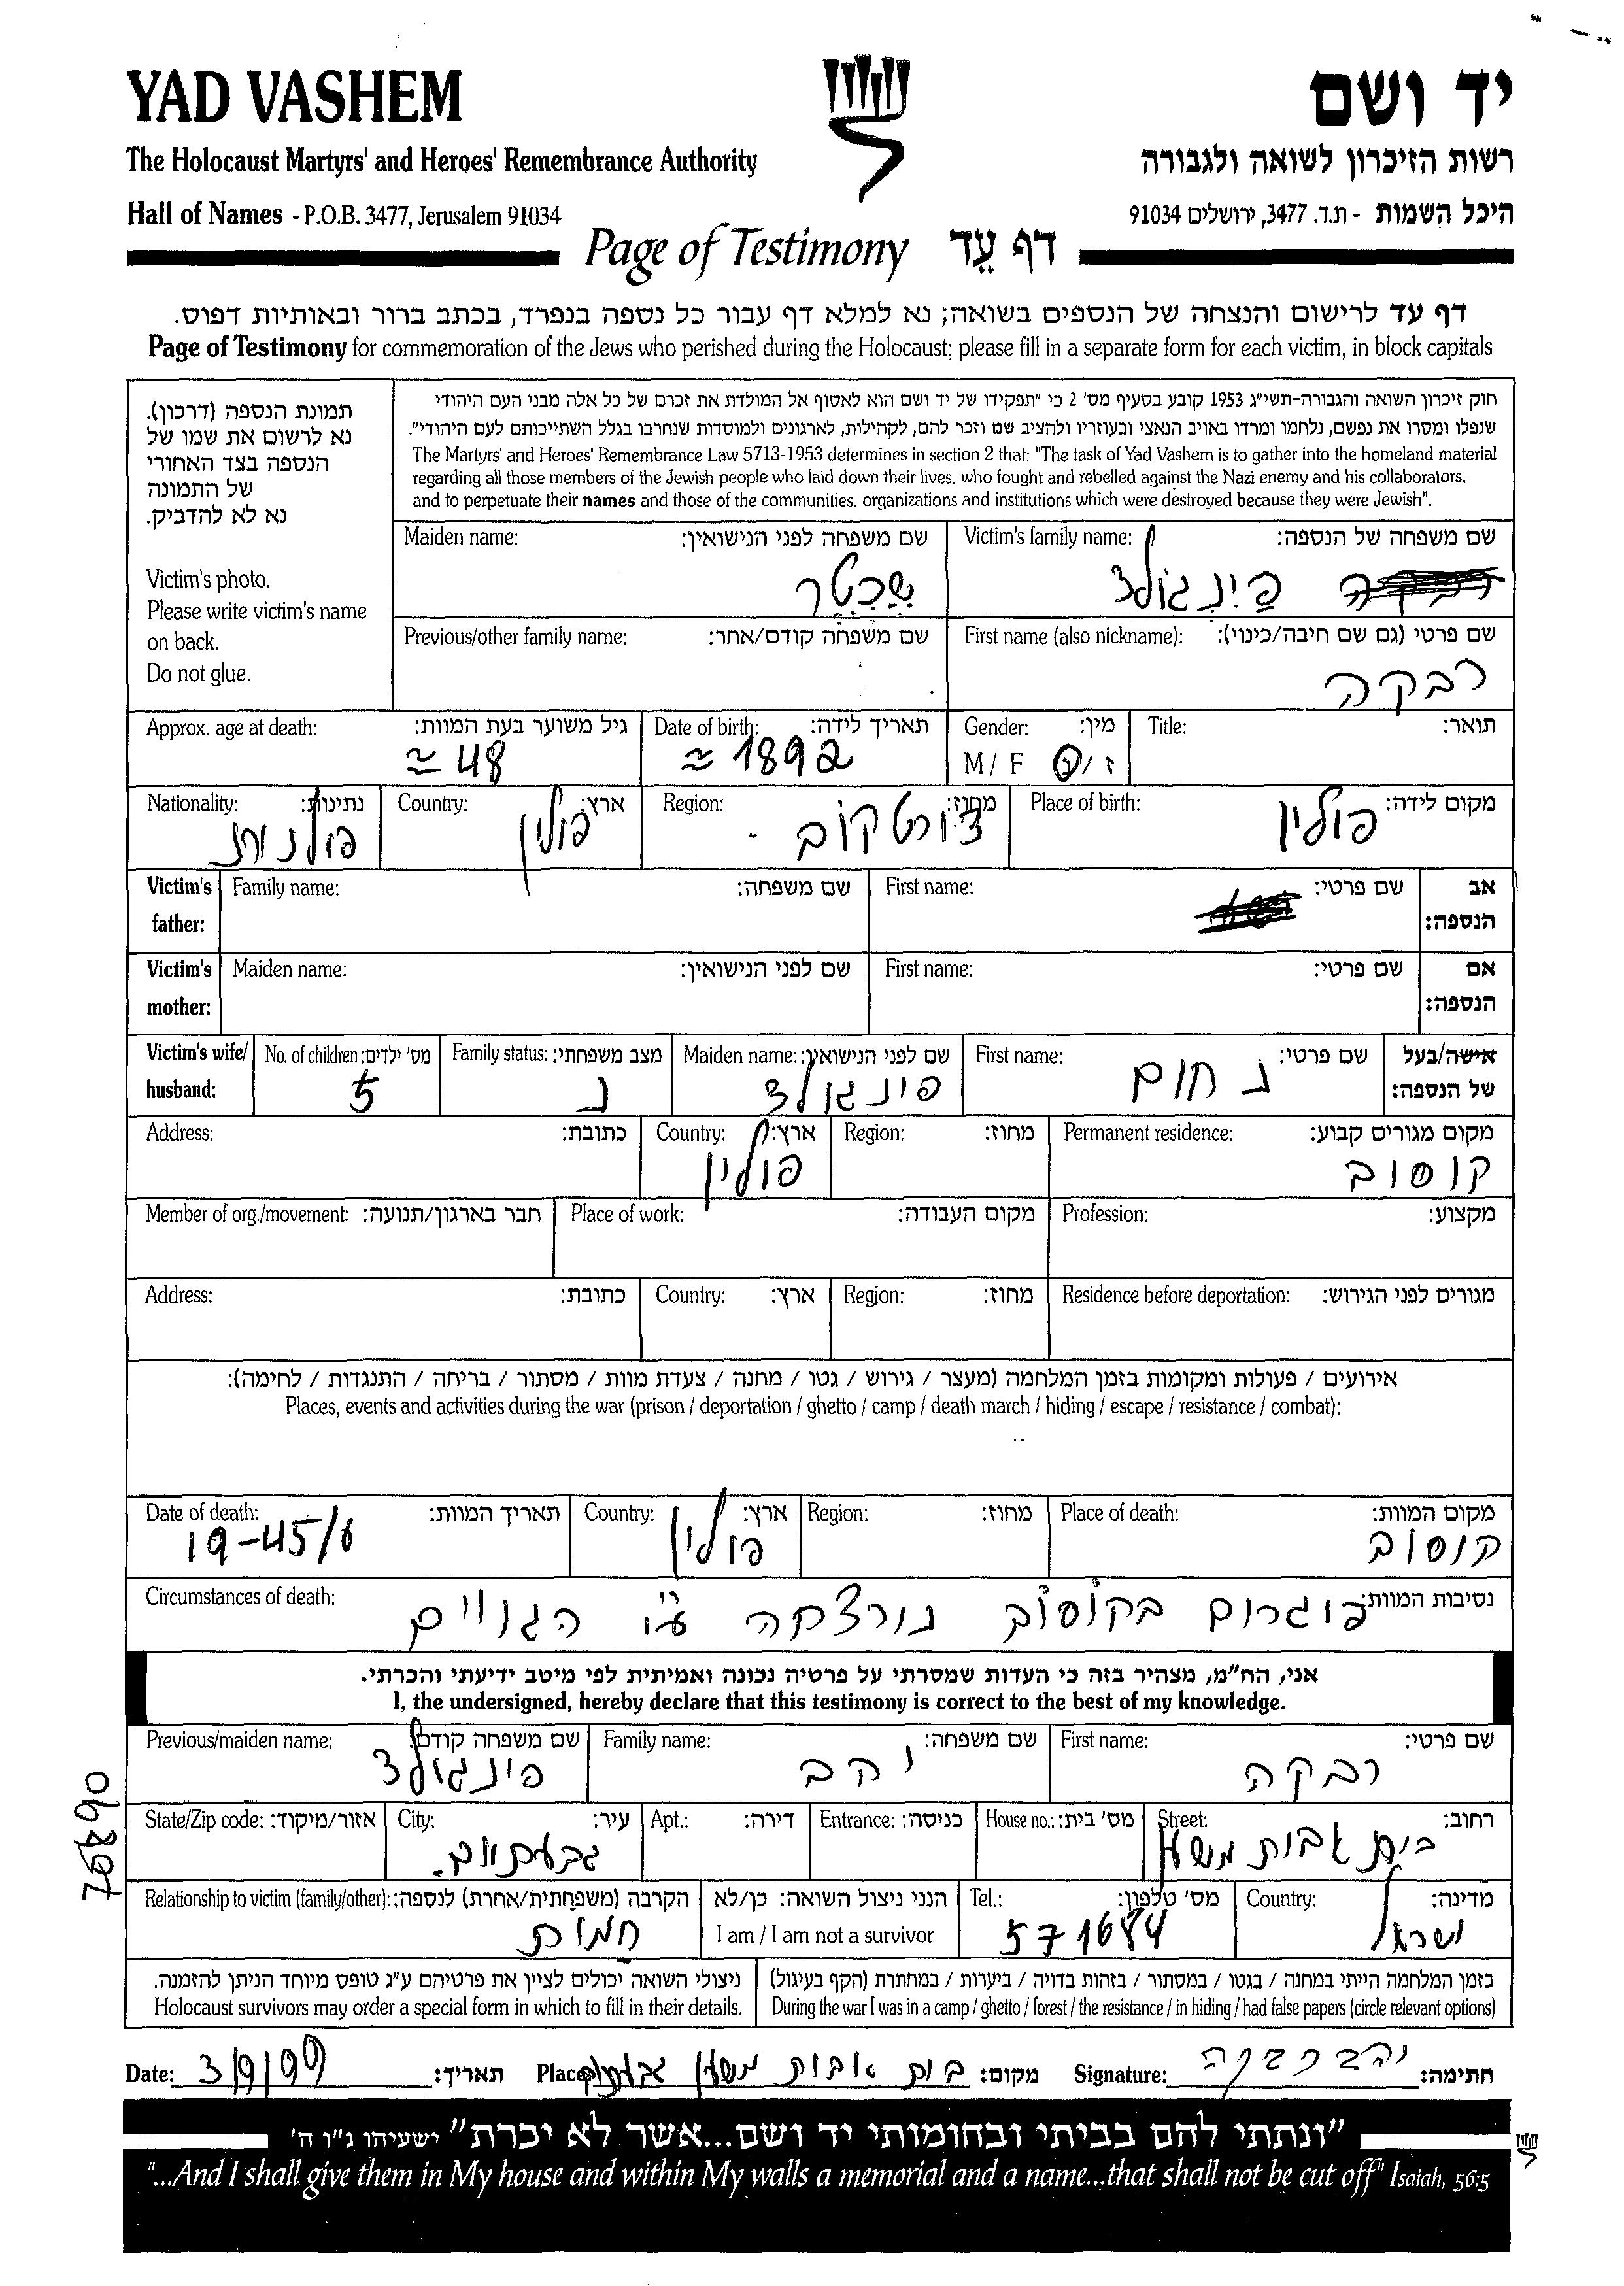 YAD VASHEM
יד ושם
The Holocaust Martyrs' and Heroes' Remembrance Authority
רשות הזיכרון לשואה ולגבורה
Hall of Names - P.O.B. 3477, Jerusalem 91034
היכל השמות - ת.ד. 3477, ירושלים 91034
Page of Testimony דף עֵד
דף עד לרישום והנצחה של הנספים בשואה; נא למלא דף עבור כל נספה בנפרד, בכתב ברור ובאותיות דפוס.
Page of Testimony for commemoration of the Jews who perished during the Holocaust; please fill in a separate form for each victim, in block capitals
תמונת הנספה (דרכון).
נא לרשום את שמו של
הנספה בצד האחורי
של התמונה
נא לא להדביק.
Victim's photo.
Please write victim's name
on back.
Do not glue.
חוק זיכרון השואה והגבורה-תשי"ג 1953 קובע בסעיף מס' 2 כי "תפקידו של יד ושם הוא לאסוף אל המולדת את זכרם של כל אלה מבני העם היהודי
שנפלו ומסרו את נפשם, נלחמו ומרדו באויב הנאצי ובעוזריו ולהציב שם וזכר להם, לקהילות, לארגונים ולמוסדות שנחרבו בגלל השתייכותם לעם היהודי".
The Martyrs' and Heroes' Remembrance Law 5713-1953 determines in section 2 that: "The task of Yad Vashem is to gather into the homeland material
regarding all those members of the Jewish people who laid down their lives, who fought and rebelled against the Nazi enemy and his collaborators,
and to perpetuate their names and those of the communities, organizations and institutions which were destroyed because they were Jewish".
Victim's family name: שם משפחה של הנספה:
פַיִנגוֹלד
Maiden name: שם משפחה לפני הנישואין:
שכטר
First name (also nickname): שם פרטי (גם שם חיבה/כינוי):
רבקה
Previous/other family name: שם משפחה קודם/אחר:
Title: תואר:
Gender: מין:
M / F ז/נ
Date of birth: תאריך לידה:
≈ 1892
Approx. age at death: גיל משוער בעת המוות:
≈ 48
Place of birth: מקום לידה:
פולין
Region: מחוז:
צ'ורטקוב
Country: ארץ:
פולין
Nationality: נתינות:
פולנית
Victim's father: אב הנספה:
First name: שם פרטי:
Family name: שם משפחה:
Victim's mother: אם הנספה:
First name: שם פרטי:
Maiden name: שם לפני הנישואין:
Victim's wife/husband: אישה/בעל של הנספה:
First name: שם פרטי:
נחום
Maiden name: שם לפני הנישואין:
פינגולד
Family status: מצב משפחתי:
נ
No. of children: מס' ילדים:
5
Permanent residence: מקום מגורים קבוע:
קוסוב
Region: מחוז:
Country: ארץ:
פולין
Address: כתובת:
Profession: מקצוע:
Place of work: מקום העבודה:
Member of org./movement: חבר בארגון/תנועה:
Residence before deportation: מגורים לפני הגירוש:
Region: מחוז:
Country: ארץ:
Address: כתובת:
אירועים / פעולות ומקומות בזמן המלחמה (מעצר / גירוש / גטו / מחנה / צעדת מוות / מסתור / בריחה / התנגדות / לחימה):
Places, events and activities during the war (prison / deportation / ghetto / camp / death march / hiding / escape / resistance / combat):
Place of death: מקום המוות:
קוסוב
Region: מחוז:
Country: ארץ:
פולין
Date of death: תאריך המוות:
19-45/6
Circumstances of death: נסיבות המוות:
פוגרום בקוסוב נורצחה ע"י הגויים
אני, הח"מ, מצהיר בזה כי העדות שמסרתי על פרטיה נכונה ואמיתית לפי מיטב ידיעתי והכרתי.
I, the undersigned, hereby declare that this testimony is correct to the best of my knowledge.
First name: שם פרטי:
רבקה
Family name: שם משפחה:
יהב
Previous/maiden name: שם משפחה קודם:
פינגולד
Street: רחוב:
בית אבות משען
House no.: מס' בית:
Entrance: כניסה:
Apt.: דירה:
City: עיר:
גבעתיים
State/Zip code: אזור/מיקוד:
Country: מדינה:
ישראל
Tel.: מס' טלפון:
571684
הנני ניצול השואה: כן/לא
I am / I am not a survivor
Relationship to victim (family/other): הקרבה (משפחתית/אחרת) לנספה:
חמות
בזמן המלחמה הייתי במחנה / בגטו / במסתור / בזהות בדויה / ביערות / במחתרת (הקף בעיגול)
During the war I was in a camp / ghetto / forest / the resistance / in hiding / had false papers (circle relevant options)
ניצולי השואה יכולים לציין את פרטיהם ע"ג טופס מיוחד הניתן להזמנה.
Holocaust survivors may order a special form in which to fill in their details.
Date: 3/9/99 תאריך:
Place: בית אבות משען מקום:
Signature: יהב רבקה חתימה:
"ונתתי להם בביתי ובחומותי יד ושם...אשר לא יכרת" ישעיהו נ"ו ה'
"...And I shall give them in My house and within My walls a memorial and a name...that shall not be cut off" Isaiah, 56:5